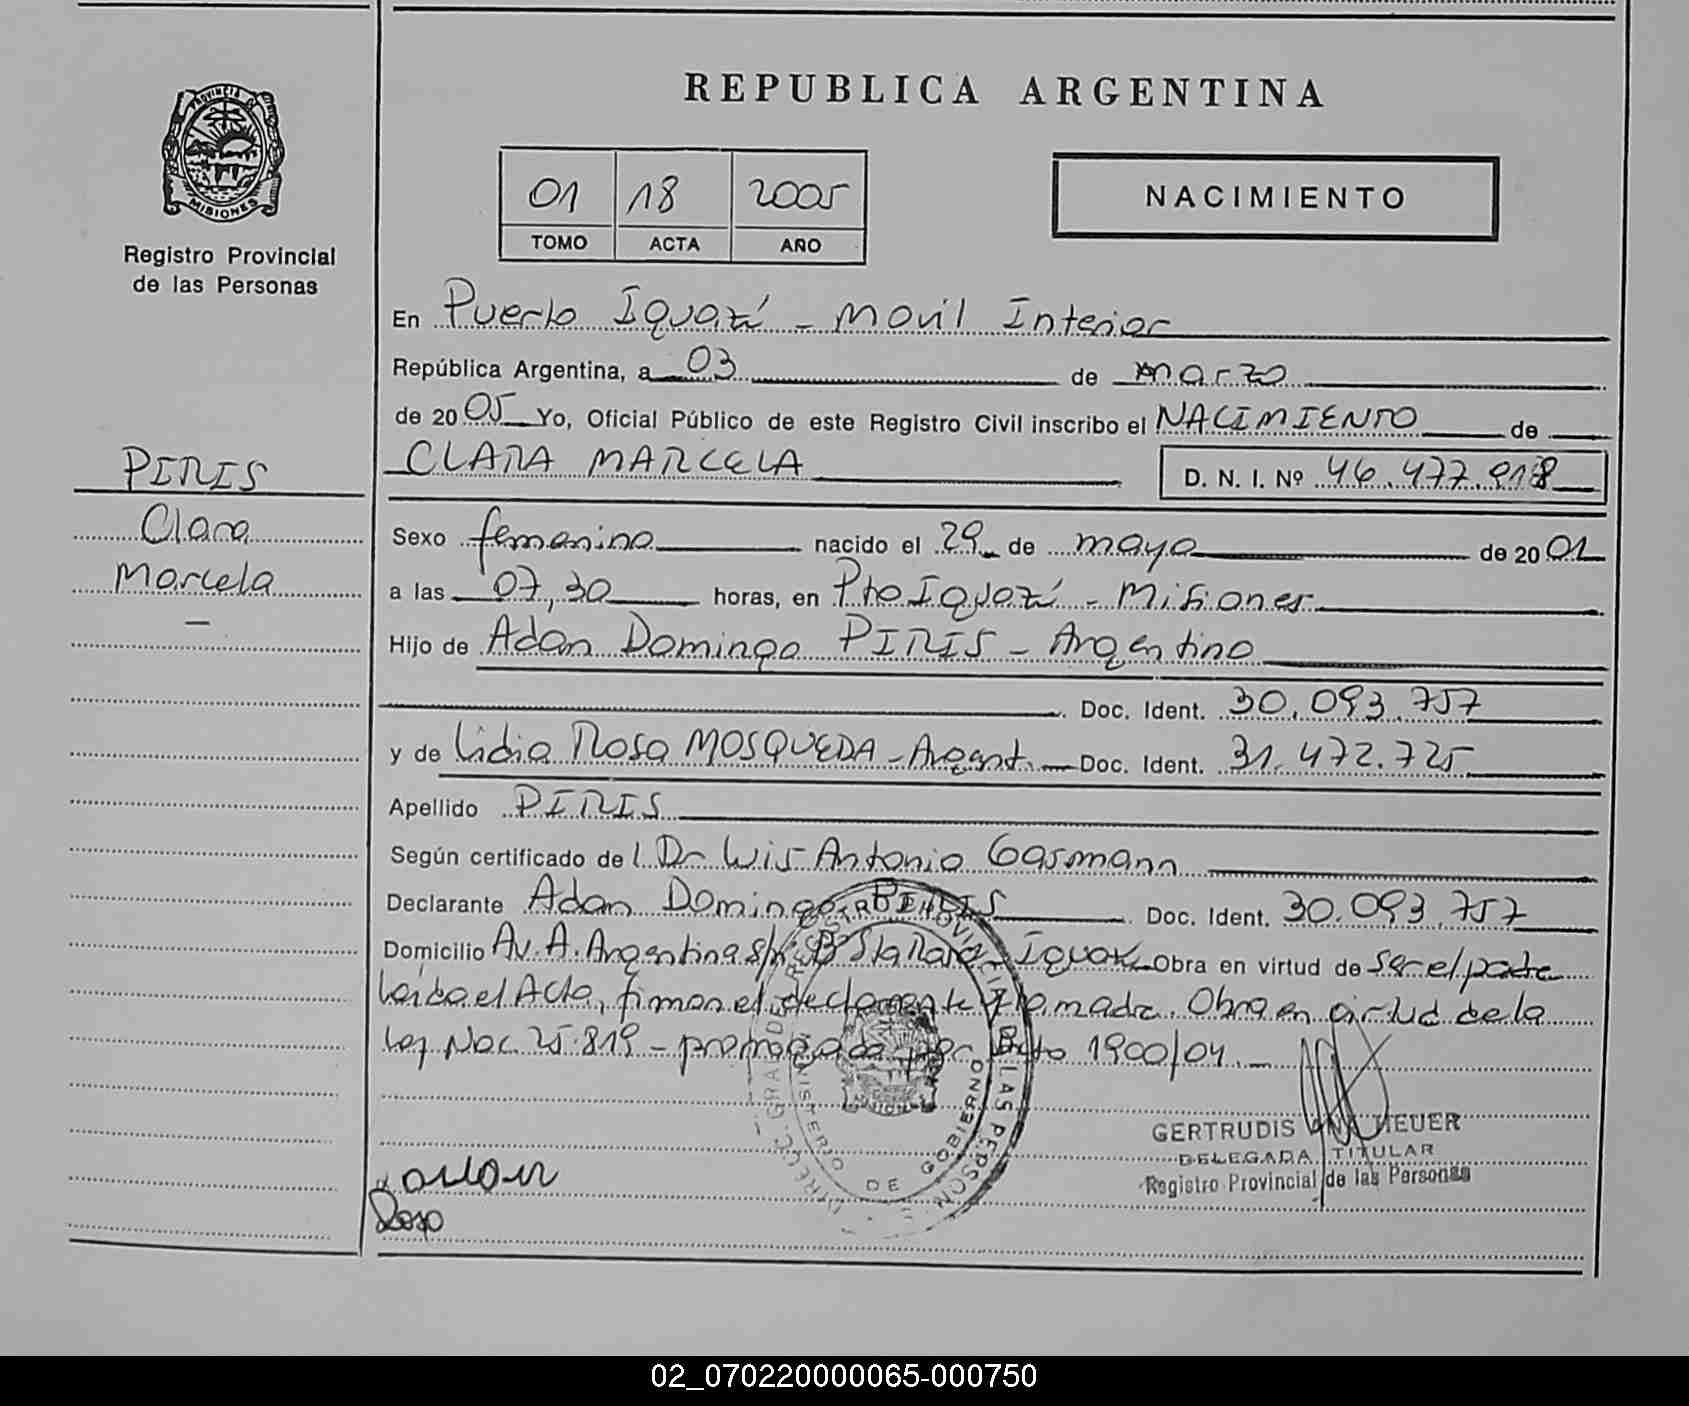 REPUBLICA ARGENTINA
PROVINCIA DE
MISIONES
Registro Provincial
de las Personas
01 18 2005
TOMO ACTA AÑO
NACIMIENTO
En Puerto Iguazú - Movil Interior
República Argentina, a 03 de marzo
de 2005 Yo, Oficial Público de este Registro Civil inscribo el NACIMIENTO de
CLARA MARCELA D. N. I. Nº 46.477.918
PIRIS
Clara
Marcela
Sexo femenino nacido el 29 de mayo de 2001
a las 07,30 horas, en Pto Iguazú - Misiones
Hijo de Adan Domingo PIRIS - Argentino
Doc. Ident. 30.093.757
y de Lidia Rosa MOSQUEDA - Argent. Doc. Ident. 31.472.725
Apellido PIRIS
Según certificado de Dr Luis Antonio Gasmann
Declarante Adan Domingo PIRIS Doc. Ident. 30.093.757
Domicilio Av. A. Argentina s/n Bº Sta Rosa - Iguazú Obra en virtud de ser el padre
Leido el Acta, firman el declarante y la madre. Obra en virtud de la
Ley Nac. 25.819 - prorrogada por Dcto 1900/04.-
GERTRUDIS ANA HEUER
DELEGADA TITULAR
Registro Provincial de las Personas
MINISTERIO DE GOBIERNO
Rosa
02_070220000065-000750